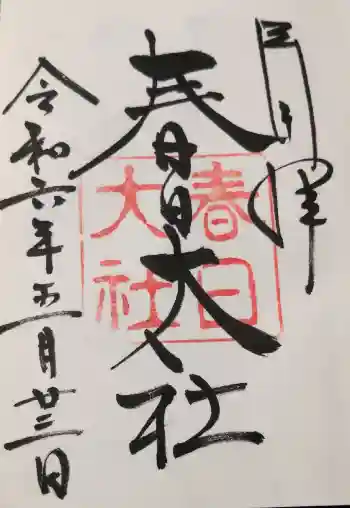 春日大社
令和六年五月廿三日
春日
大社